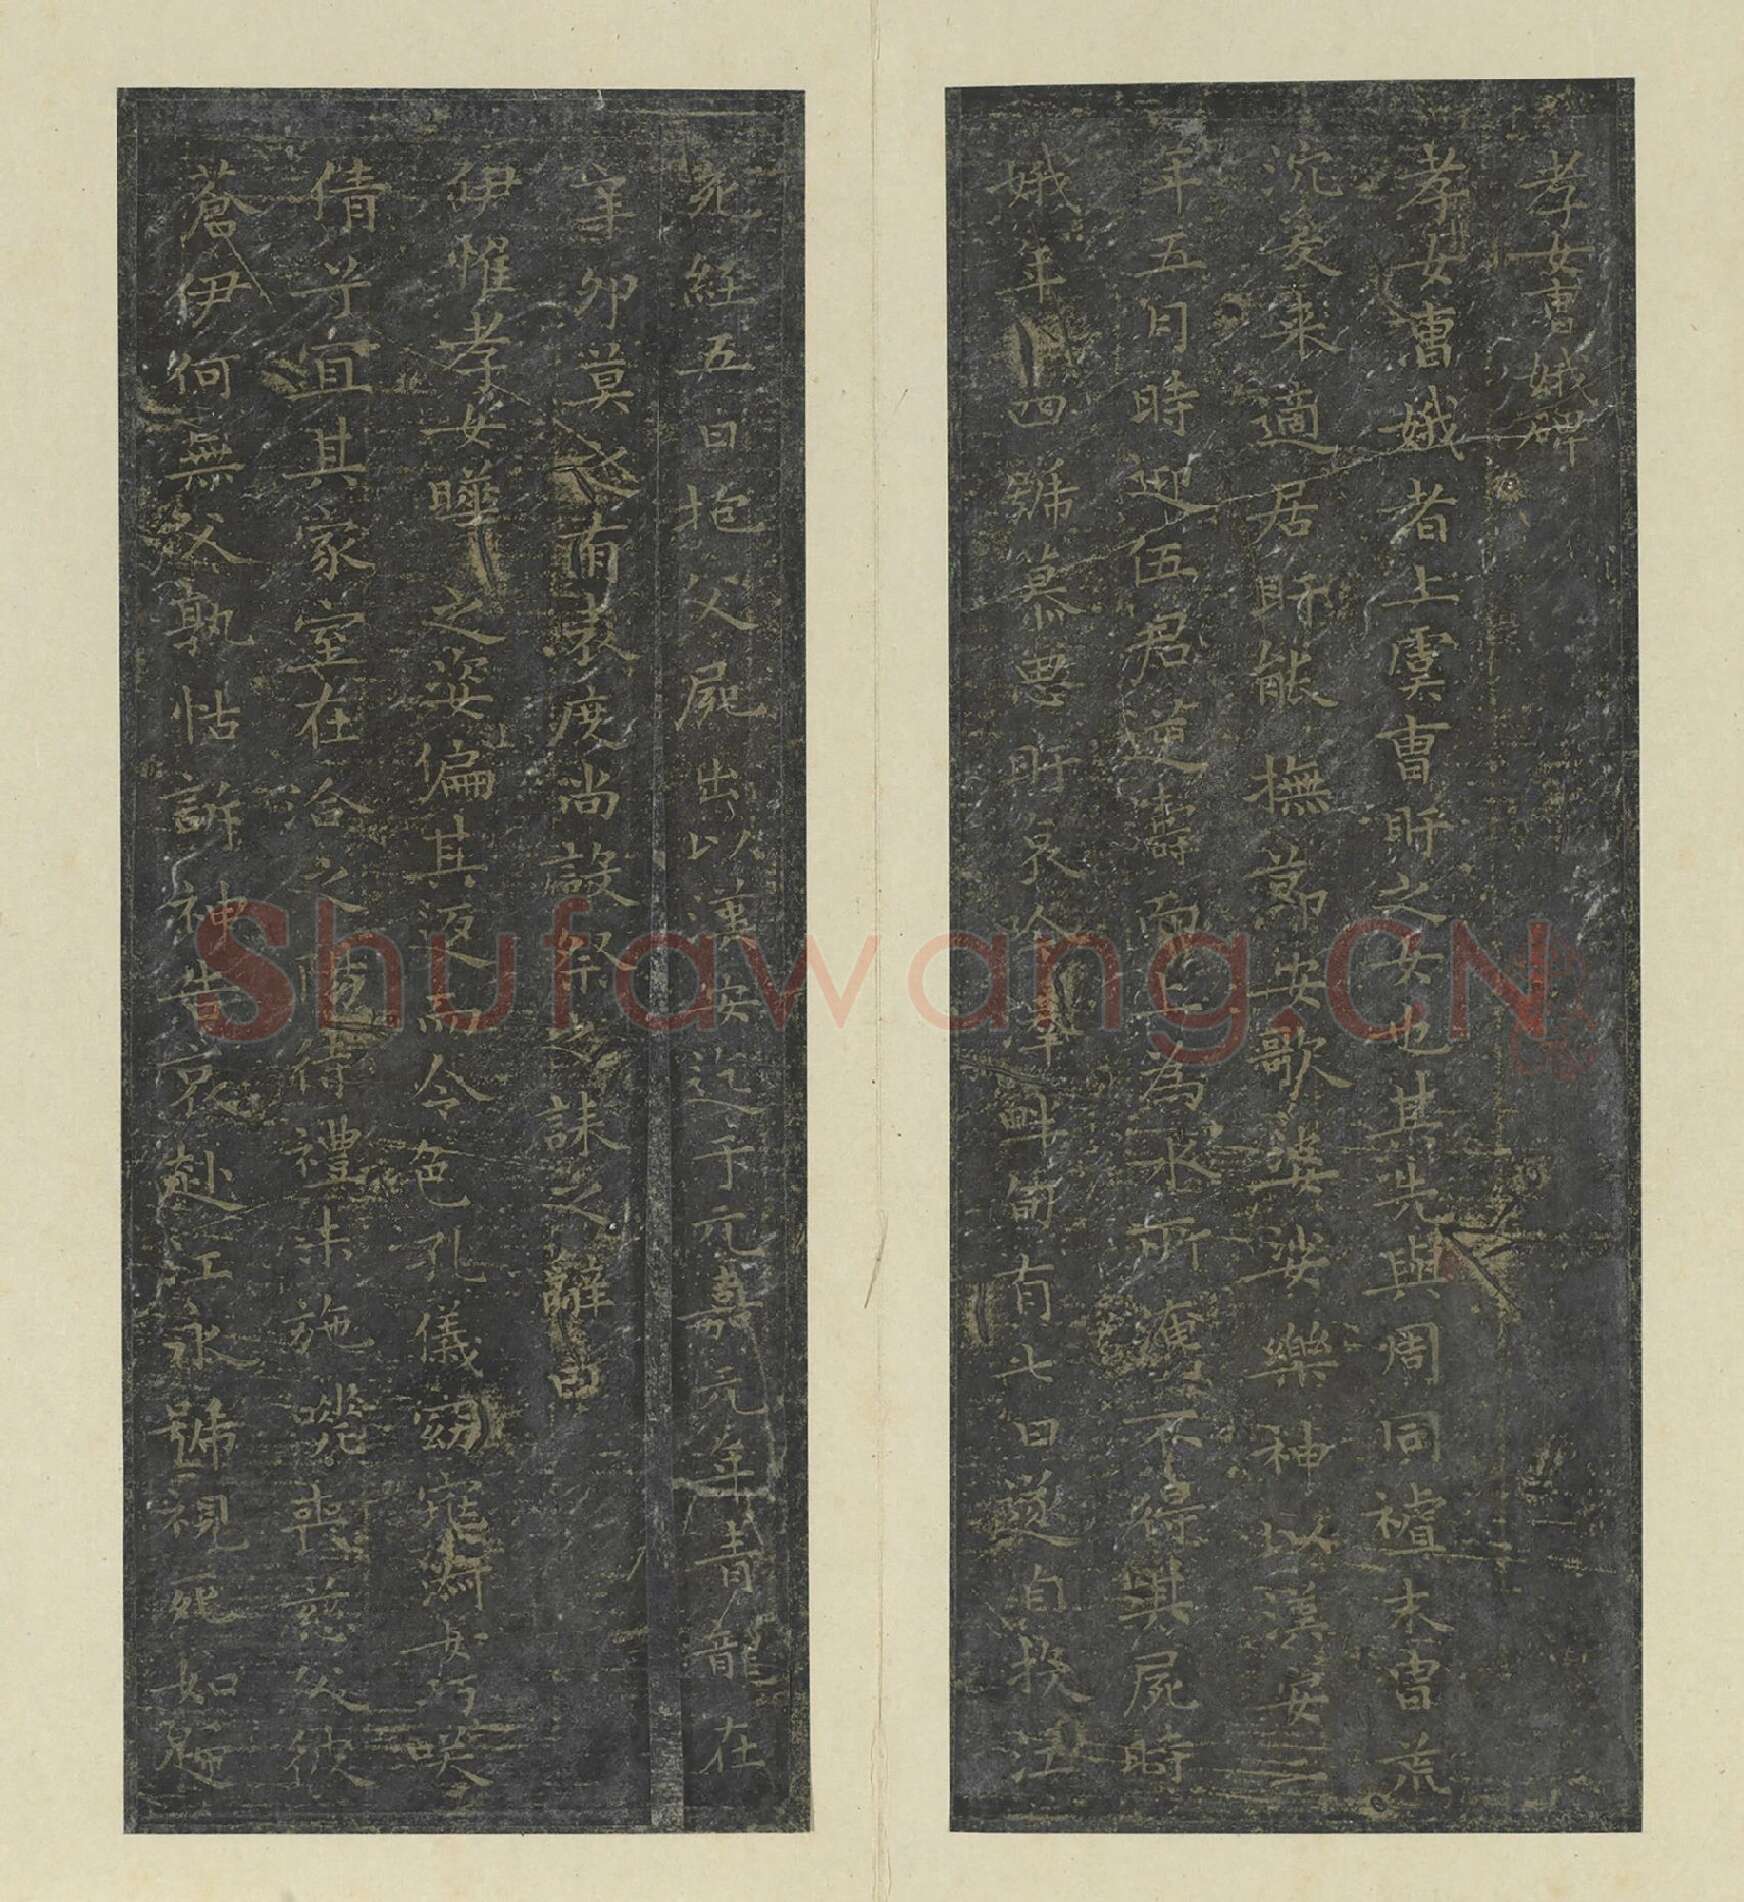 孝女曹娥碑
孝女曹娥者上虞曹盱之女也其先與周同祖末胄荒
沉爰来適居盱能撫節安歌婆娑樂神以漢安二
年五月時迎伍君逆濤而上為水所淹不得其屍時
娥年十四號慕思盱哀吟澤畔旬有七日遂自投江
死經五日抱父屍出以漢安迄于元嘉元年青龍在
辛卯莫之有表度尚設祭之誄之辭曰
伊惟孝女曄曄之姿偏其返而令色孔儀窈窕淑女巧咲
倩兮宜其家室在洽之陽待禮未施嗟喪慈父彼
蒼伊何無父孰怙訴神告哀赴江永號視死如歸
Shufawang.CN